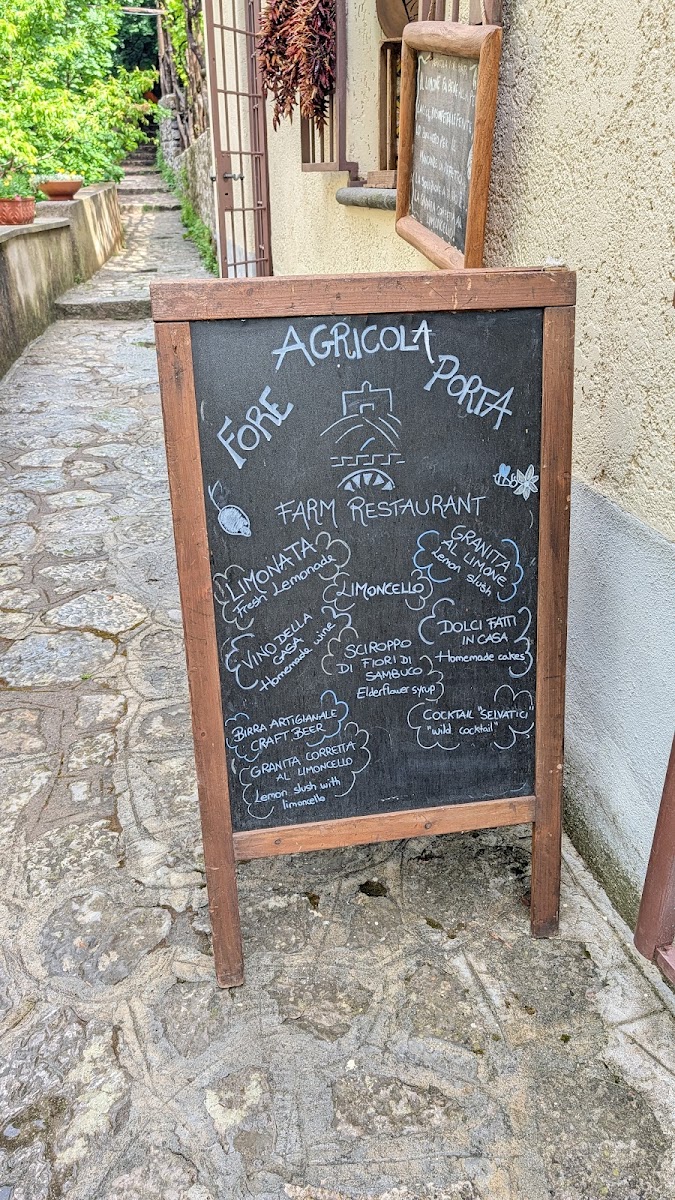 AGRICOLA
FORE PORTA
FARM RESTAURANT
LIMONATA
Fresh Lemonade
LIMONCELLO
GRANITA
AL LIMONE
Lemon slush
VINO DELLA
CASA
Homemade wine
SCIROPPO
DI FIORI DI
SAMBUCO
Elderflower syrup
DOLCI FATTI
IN CASA
Homemade cakes
BIRRA ARTIGIANALE
CRAFT BEER
COCKTAIL "SELVATICI"
"wild cocktail"
GRANITA CORRETTA
AL LIMONCELLO
Lemon slush with
limoncello
LIMONCELLO